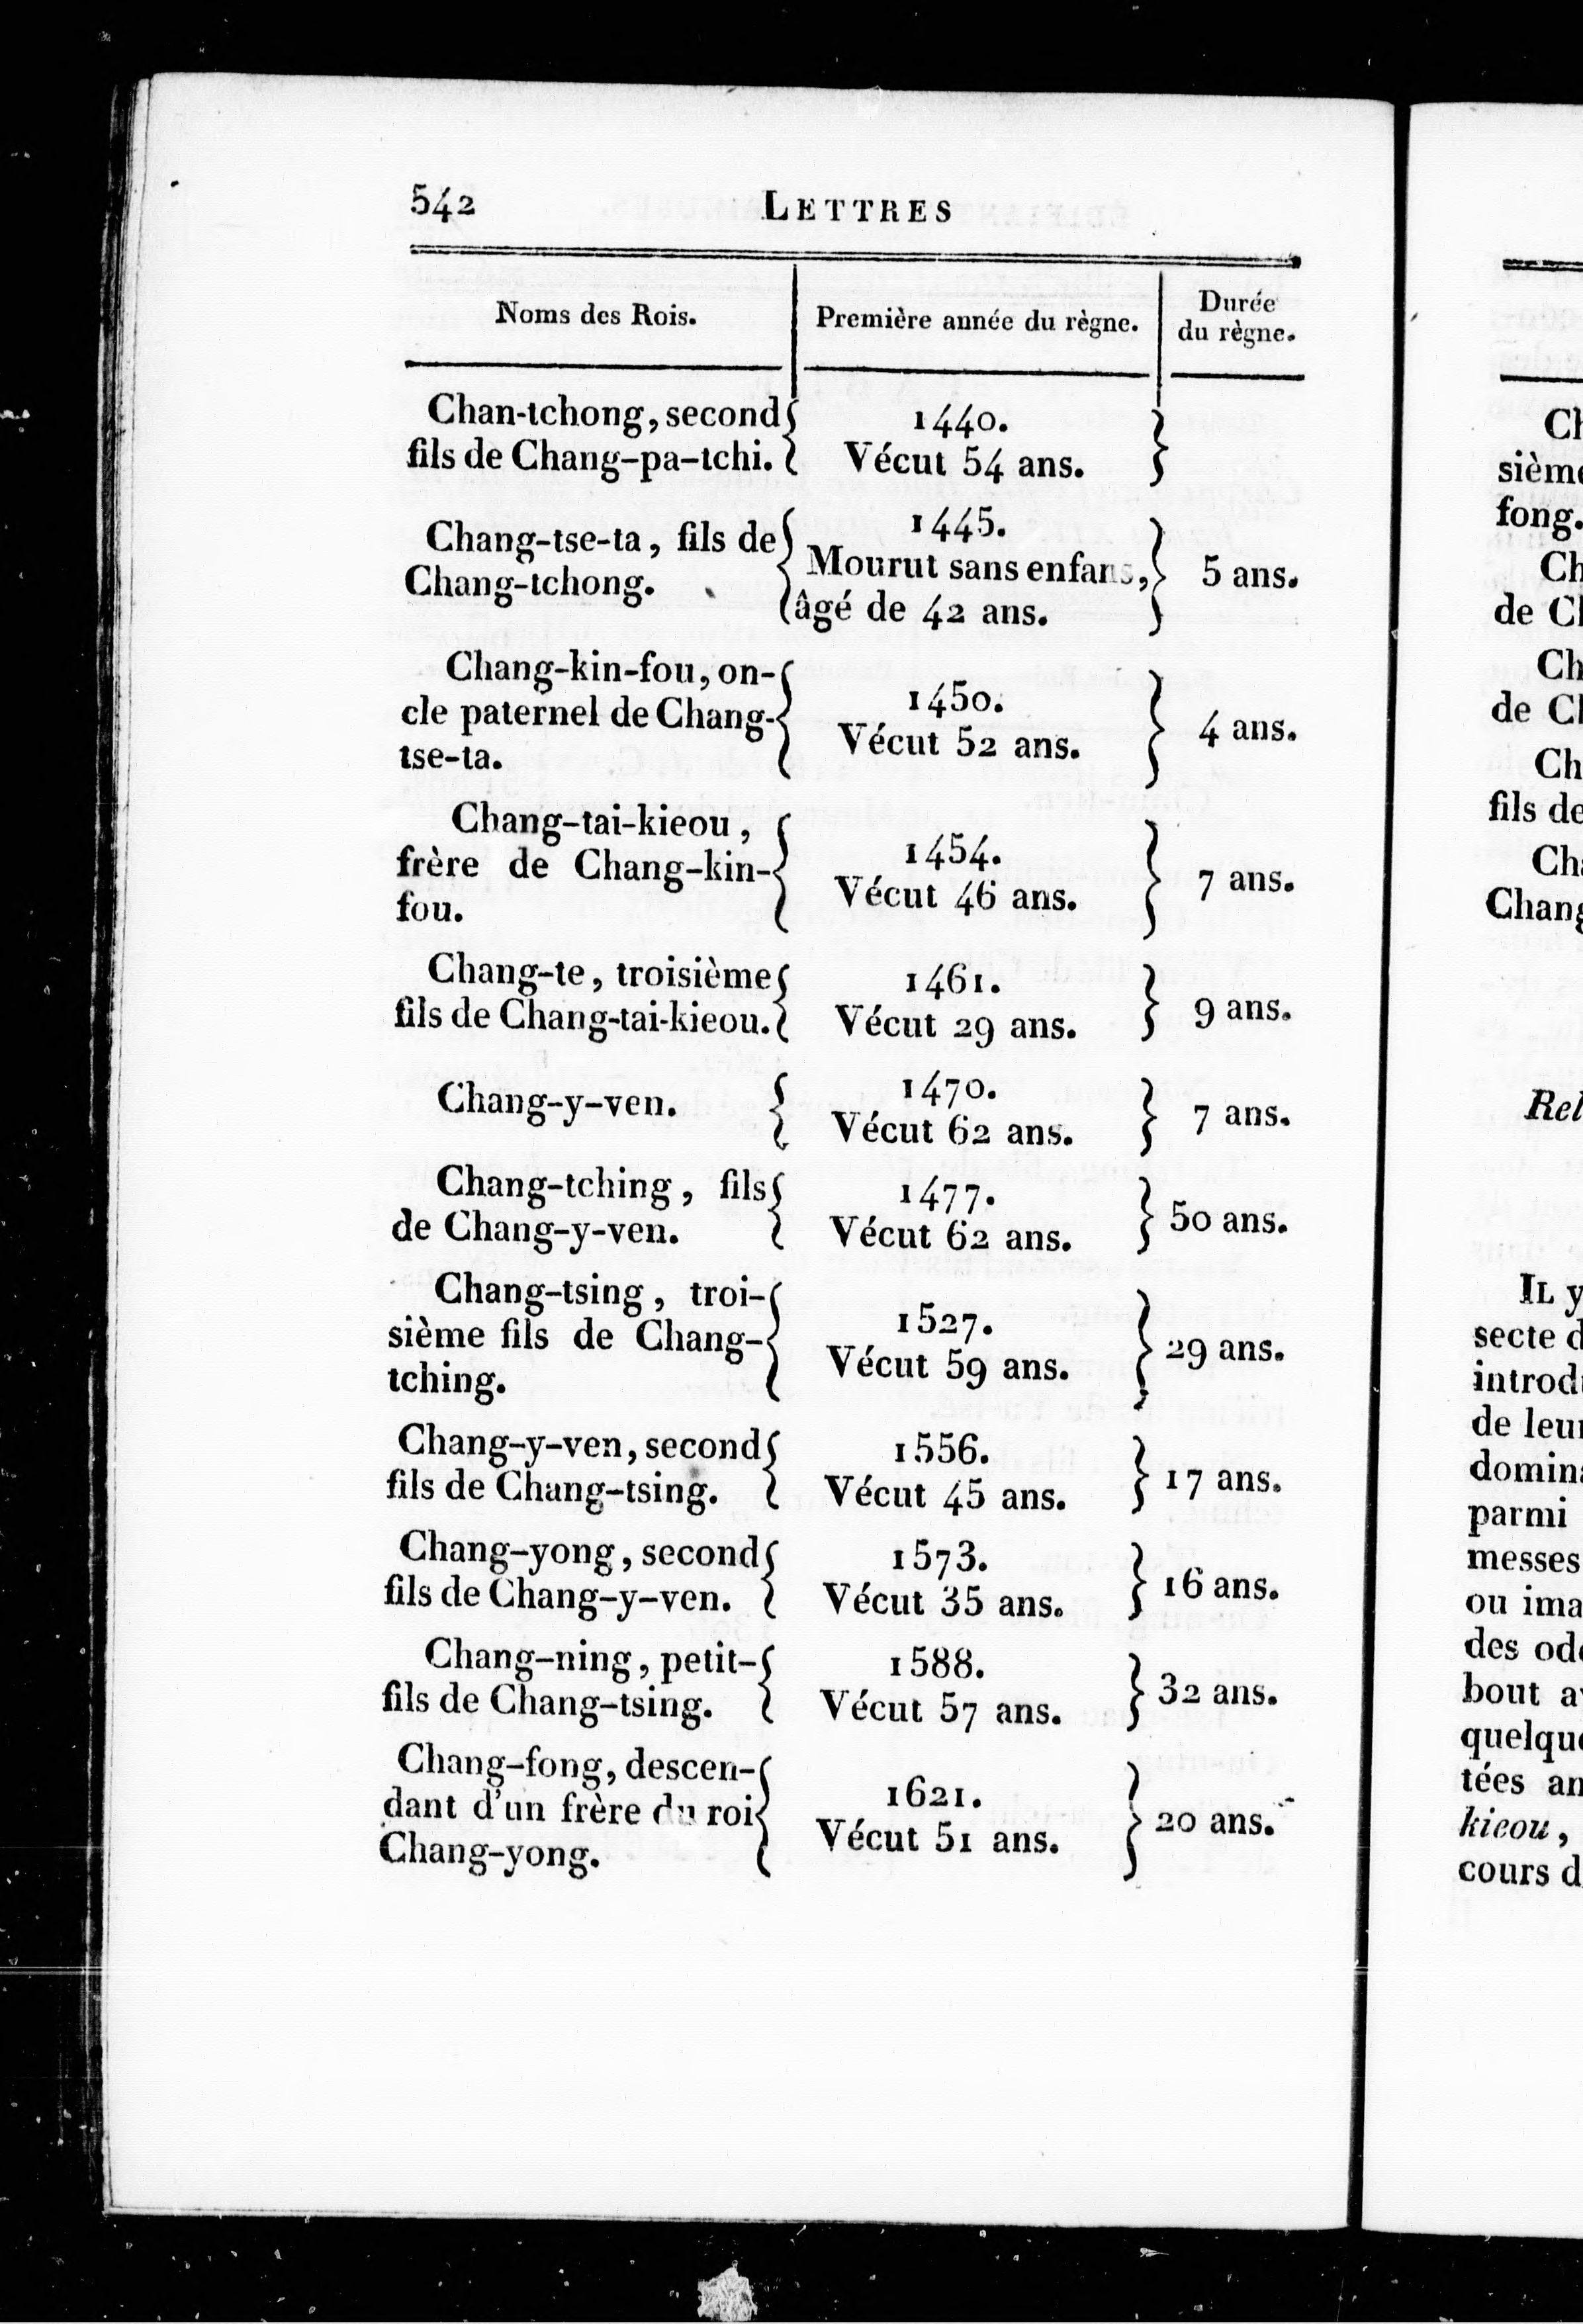 542 LETTRES
Noms des Rois. Première année du règne. Durée
du règne.
Chan-tchong, second 1440.
fils de Chang-pa-tchi. Vécut 54 ans.
1445.
Chang-tse-ta, fils de Mourut sans enfans, 5 ans.
Chang-tchong. âgé de 42 ans.
Chang-kin-fou, on-
cle paternel de Chang- 1450. 4 ans.
tse-ta. Vécut 52 ans.
Chang-tai-kieou,
frère de Chang-kin- 1454. 7 ans.
fou. Vécut 46 ans.
Chang-te, troisième 1461.
fils de Chang-tai-kieou. Vécut 29 ans. 9 ans.
Chang-y-ven. 1470. 7 ans.
Vécut 62 ans.
Chang-tching, fils 1477.
de Chang-y-ven. Vécut 62 ans. 50 ans.
Chang-tsing, troi-
sième fils de Chang- 1527. 29 ans.
tching. Vécut 59 ans.
Chang-y-ven, second 1556.
fils de Chang-tsing. Vécut 45 ans. 17 ans.
Chang-yong, second 1573.
fils de Chang-y-ven. Vécut 35 ans. 16 ans.
Chang-ning, petit- 1588.
fils de Chang-tsing. Vécut 57 ans. 32 ans.
Chang-fong, descen-
dant d'un frère du roi 1621. 20 ans.
Chang-yong. Vécut 51 ans.
Ch
sième
fong.
Ch
de Ch
Ch
de Ch
Ch
fils de
Cha
Chang
Rel
IL y
secte d
introdu
de leur
domina
parmi
messes
ou ima
des ode
bout av
quelque
tées an
kieou,
cours d